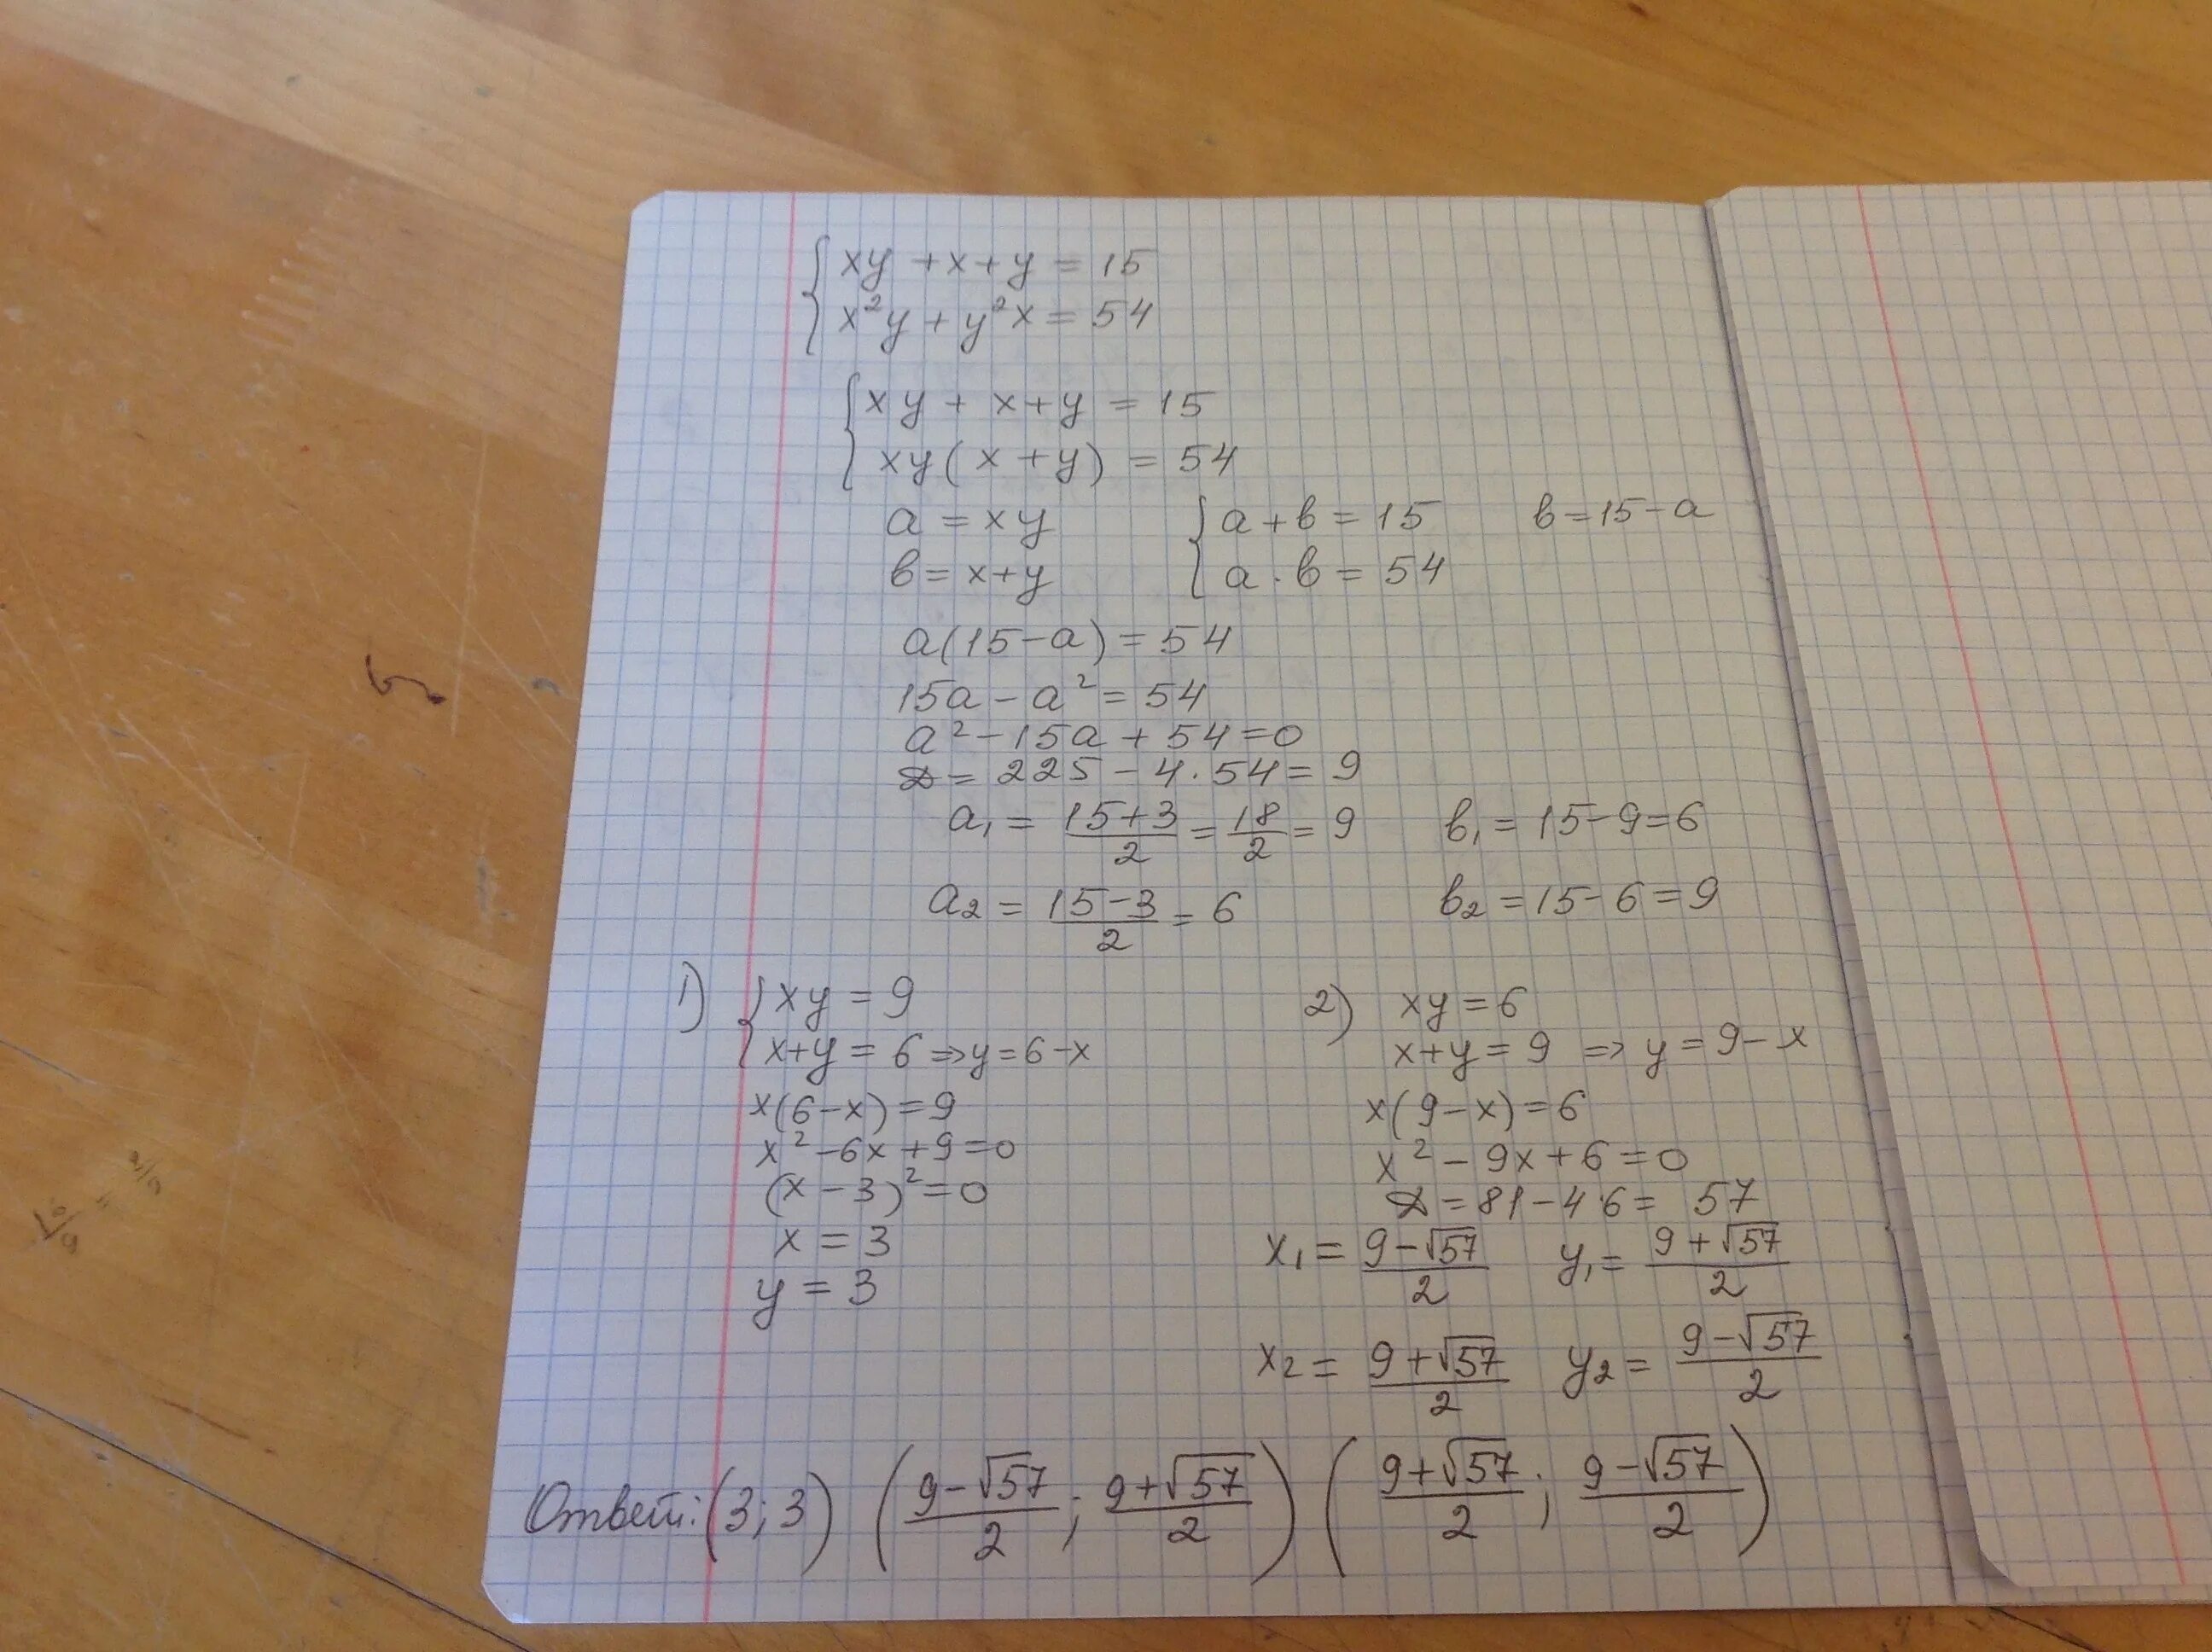 xy + x + y = 15
x²y + y²x = 54
xy + x + y = 15
xy(x + y) = 54
a = xy a + b = 15 b = 15 - a
b = x + y a · b = 54
a(15 - a) = 54
15a - a² = 54
a² - 15a + 54 = 0
D = 225 - 4 · 54 = 9
a₁ = (15 + 3)/2 = 18/2 = 9 b₁ = 15 - 9 = 6
a₂ = (15 - 3)/2 = 6 b₂ = 15 - 6 = 9
1) xy = 9
x + y = 6 => y = 6 - x
x(6 - x) = 9
x² - 6x + 9 = 0
(x - 3)² = 0
x = 3
y = 3
2) xy = 6
x + y = 9 => y = 9 - x
x(9 - x) = 6
x² - 9x + 6 = 0
D = 81 - 4·6 = 57
x₁ = (9 - √57)/2 y₁ = (9 + √57)/2
x₂ = (9 + √57)/2 y₂ = (9 - √57)/2
Ответ: (3; 3) ((9 - √57)/2 ; (9 + √57)/2) ((9 + √57)/2 ; (9 - √57)/2)